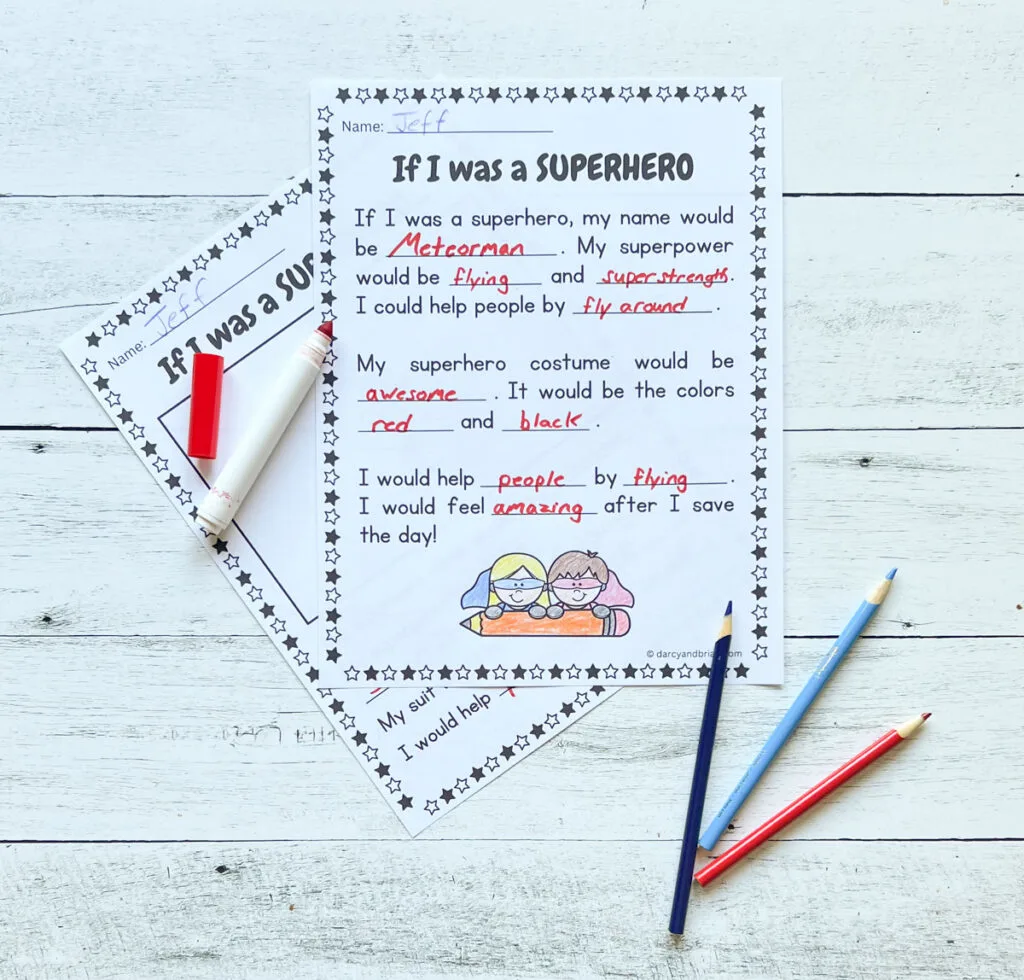 Name: Jeff
If I was a SUPERHERO
If I was a superhero, my name would
be Meteorman . My superpower
would be flying and superstrength.
I could help people by fly around .
My superhero costume would be
awesome . It would be the colors
red and black .
I would help people by flying .
I would feel amazing after I save
the day!
© darcyandbri .com
Name: Jeff
If I was a SUP
My suit
I would help